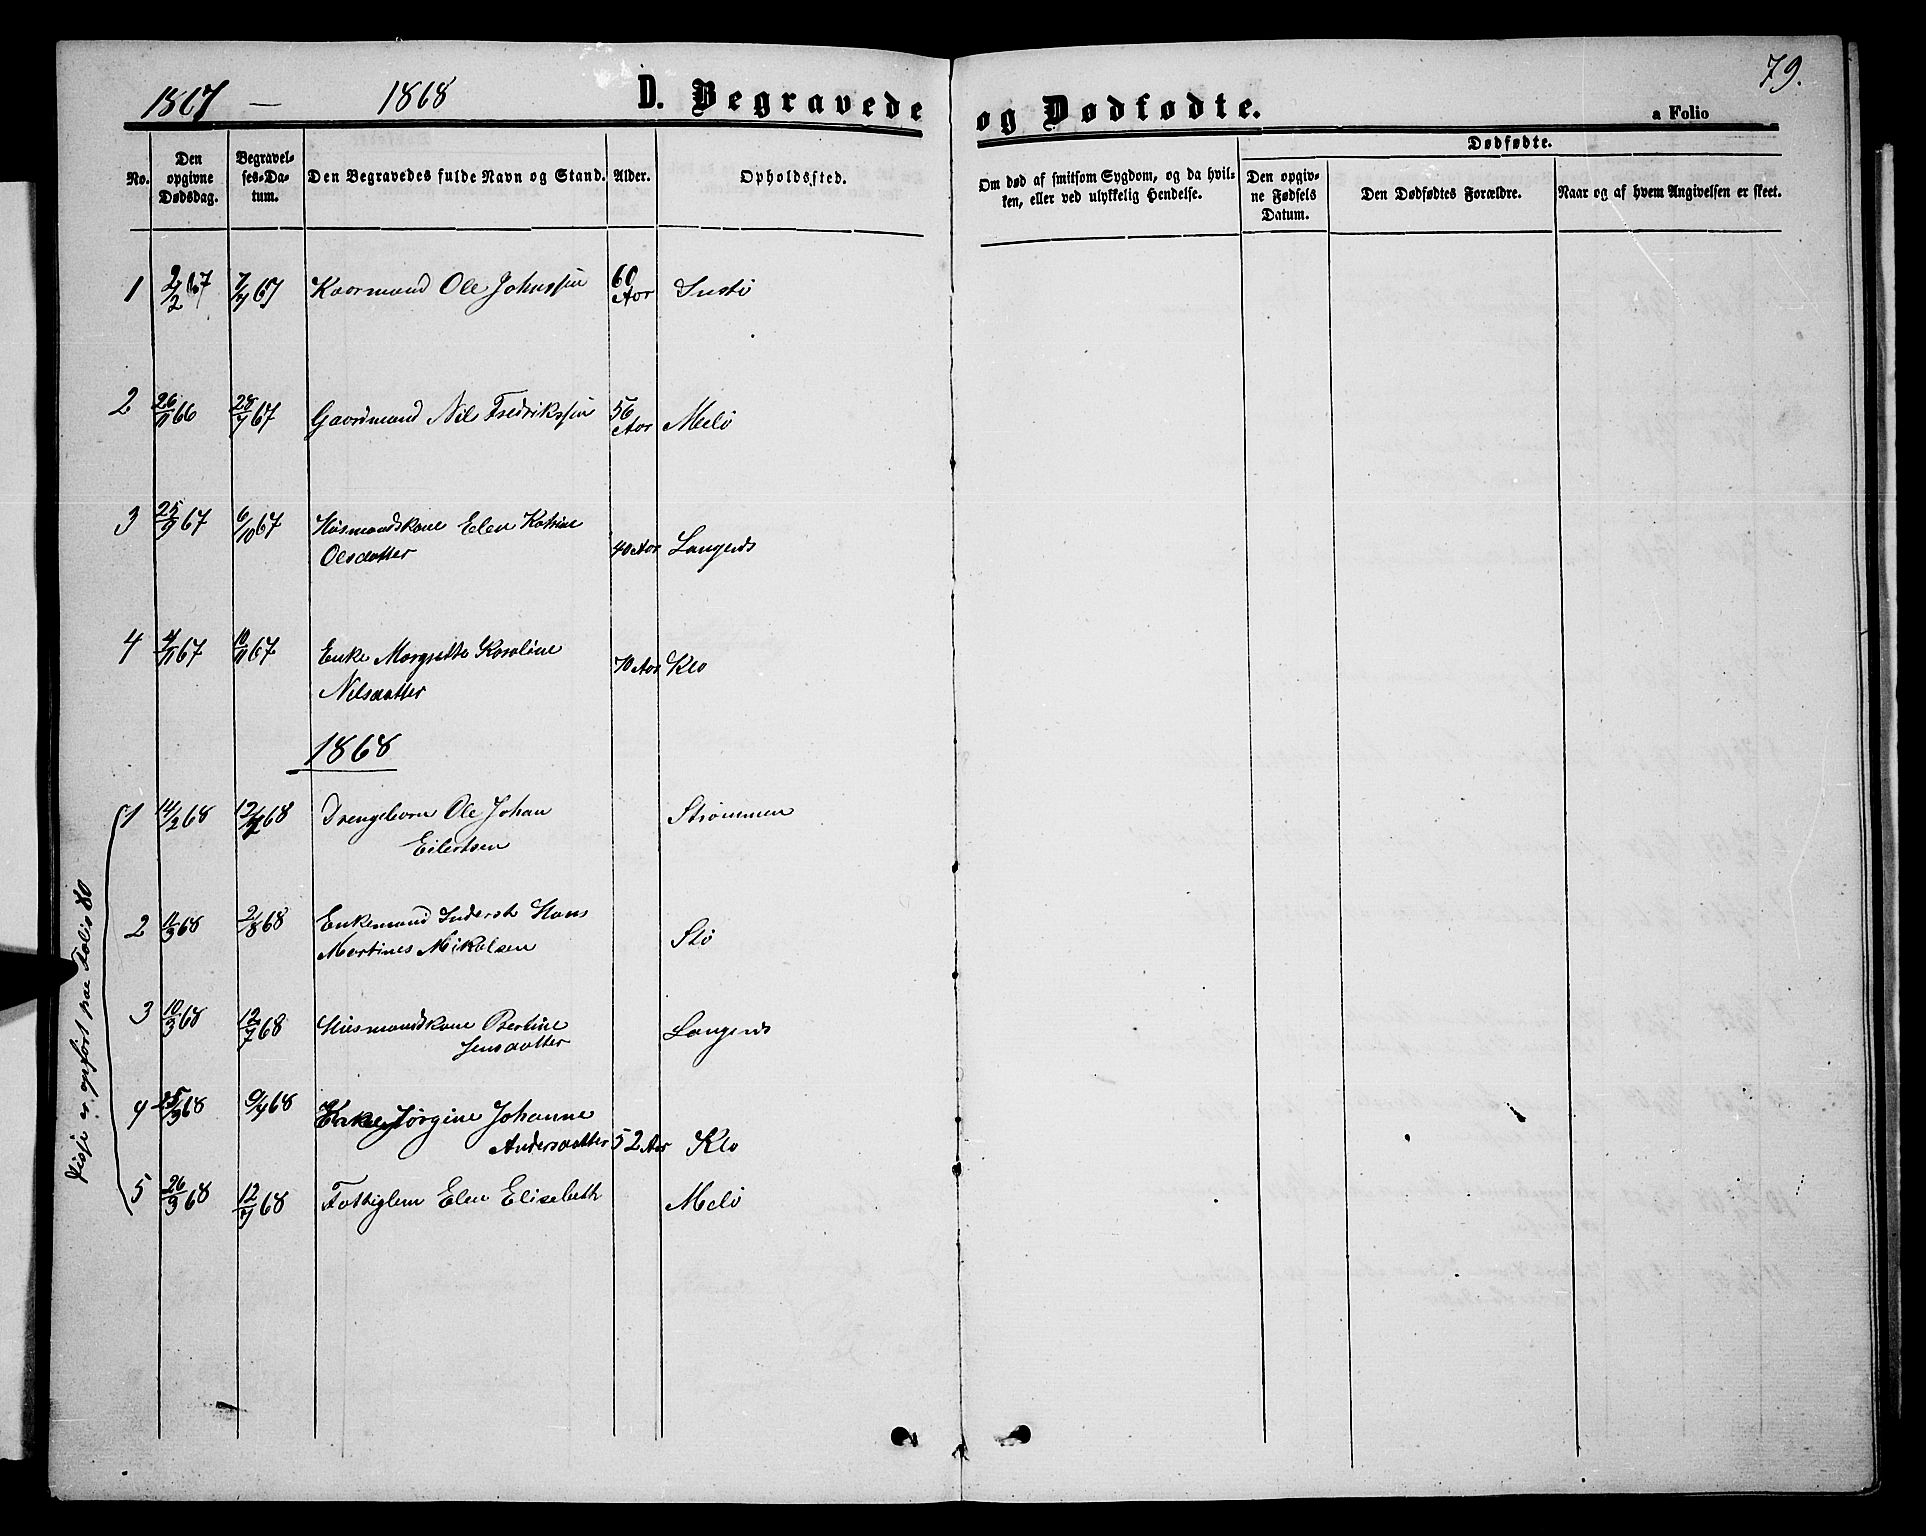 1867 — 1868 D. Begravede og Dødfødte. 79.
a Folio
No. Den opgivne Dødsdag. Begravelses-Datum. Den Begravedes fulde Navn og Stand. Alder. Opholdssted. Om død af smitsom Sygdom, og da hvilken, eller ved ulykkelig Hendelse. Dødfødte. Den opgivne Fødsels Datum. Den Dødfødtes Forældre. Naar og af hvem Angivelsen er skeet.
1 2/2 67 7/4 67 Kaarmand Ole Johnssøn 60 Aar
2 26/11 66 28/4 67 Gaardmand Nils Fredrikssøn 56 Aar Melø
3 25/9 67 6/10 67 Husmandskone Elen Katrine
Olsdatter 40 Aar Langenes
4 4/11 67 10/11 67 Enke Margrette Karoline
Nilsdatter 70 Aar Klo
1868
1 14/2 68 12/4 68 Drengebarn Ole Johan
Eilertsen Strømmen
2 11/3 68 2/8 68 Enkemand Inderst Hans
Martines Mikalsen Stø
3 10/3 68 12/7 68 Husmandskone Bertine
Jensdatter Langenes
4 25/3 68 9/4 68 Enke Jørgine Johanne
Andersdatter 52 Aar Klo
5 26/3 68 12/7 68 Fattiglem Elen Elisabeth Melø
Disse er opført paa Folio 80